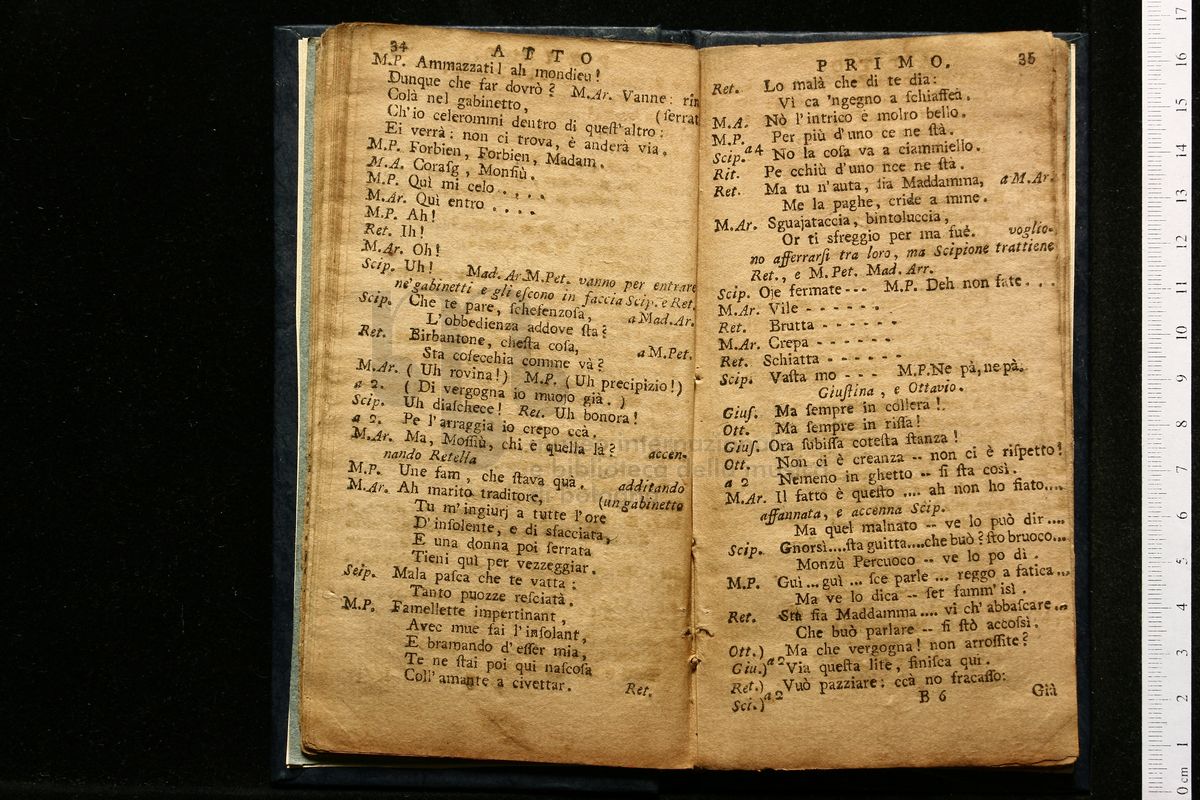 34 ATTO
M.P. Ammazzati! ah mondieu!
Dunque che far dovrò? M.Ar. Vanne: rin
Colà nel gabinetto, (ſerrat
Ch'io celerommi dentro di queſt'altro:
Ei verrà: non ci trova, è anderà via.
M.P. Forbien, Forbien, Madam.
M.A. Coraſg, Monſiù.
M.P. Quì mi celo . . . .
M.Ar. Quì entro . . . .
M.P. Ah!
Ret. Ih!
M.Ar. Oh!
Scip. Uh! Mad. Ar. M.Pet. vanno per entrare
ne' gabinetti e gli eſcono in faccia Scip. e Ret.
Scip. Che te pare, ſcheſenzoſa, a Mad. Ar.
L'obbedienza addove ſta?
Ret. Birbantone, cheſta coſa, a M.Pet.
Sta coſecchia comme và?
M.Ar. ( Uh rovina!) M.P. (Uh precipizio!)
a 2. ( Di vergogna io muojo già. )
Scip. Uh diaſchece! Ret. Uh bonora!
a 2. Pe l'arraggia io crepo ccà.
M.Ar. Ma, Moſſiù, chi è quella là? accen-
nando Retella
M.P. Une fam, che ſtava quà. additando
M.Ar. Ah marito traditore, (un gabinetto
Tu m'ingiurj a tutte l'ore
D'inſolente, e di sfacciata,
E una donna poi ſerrata
Tieni quì per vezzeggiar.
Scip. Mala paſca che te vatta:
Tanto puozze reſciatà.
M.P. Famellette impertinant,
Avec mue fai l'inſolant,
E bramando d'eſſer mia,
Te ne ſtai poi qui naſcoſa
Coll'amante a civettar.
Ret.
PRIMO. 35
Ret. Lo malà che di te dia:
Vì ca 'ngegno a ſchiaffeà.
M.A. Nò l'intrico è molro bello.
M.P. Per più d'uno ce ne ſtà.
Scip. a4 No la coſa va a ciammiello.
Rit. Pe cchiù d'uno nce ne ſtà.
Ret. Ma tu n'auta, ſia Maddamma, a M.Ar.
Me la paghe, cride a mme.
M.Ar. Sguajataccia, bintoluccia,
Or ti sfreggio per ma fuè. voglio-
no afferrarſi tra loro, ma Scipione trattiene
Ret., e M. Pet. Mad. Arr.
Scip. Oje fermate - - - M.P. Deh non fate . . .
M.Ar. Vile - - - - - -
Ret. Brutta - - - - - -
M.Ar. Crepa - - - - - -
Ret. Schiatta - - - - - -
Scip. Vaſta mo - - - M.P. Ne pà, ne pà.
Giuſtina, e Ottavio.
Giuſ. Ma ſempre in collera!
Ott. Ma ſempre in riſſa!
Giuſ. Ora ſubiſſa coteſta ſtanza!
Ott. Non ci è creanza -- non ci è riſpetto!
a 2 Nemeno in ghetto -- ſi ſta così.
M.Ar. Il fatto è queſto .... ah non ho fiato....
affannata, e accenna Scip.
Ma quel malnato -- ve lo può dir ....
Scip. Gnorsì....ſta guitta....che buò? ſto bruoco...
Monzù Percuoco -- ve lo po dì .
M.P. Guì ... guì ... ſce parle ... reggo a fatica ...
Ma ve lo dica -- ſet famm' isì .
Ret. Sta ſia Maddamma .... vi ch' abbaſcare ...
Che buò parlare -- ſi ſtò accoſsì.
Ott.) Ma che vergogna! non arroſſite?
Giu.) a2 Via queſta lite, finiſca qui.
Ret.) Vuò pazziare: ccà no fracaſſo:
Sci.) a2
B 6 Già